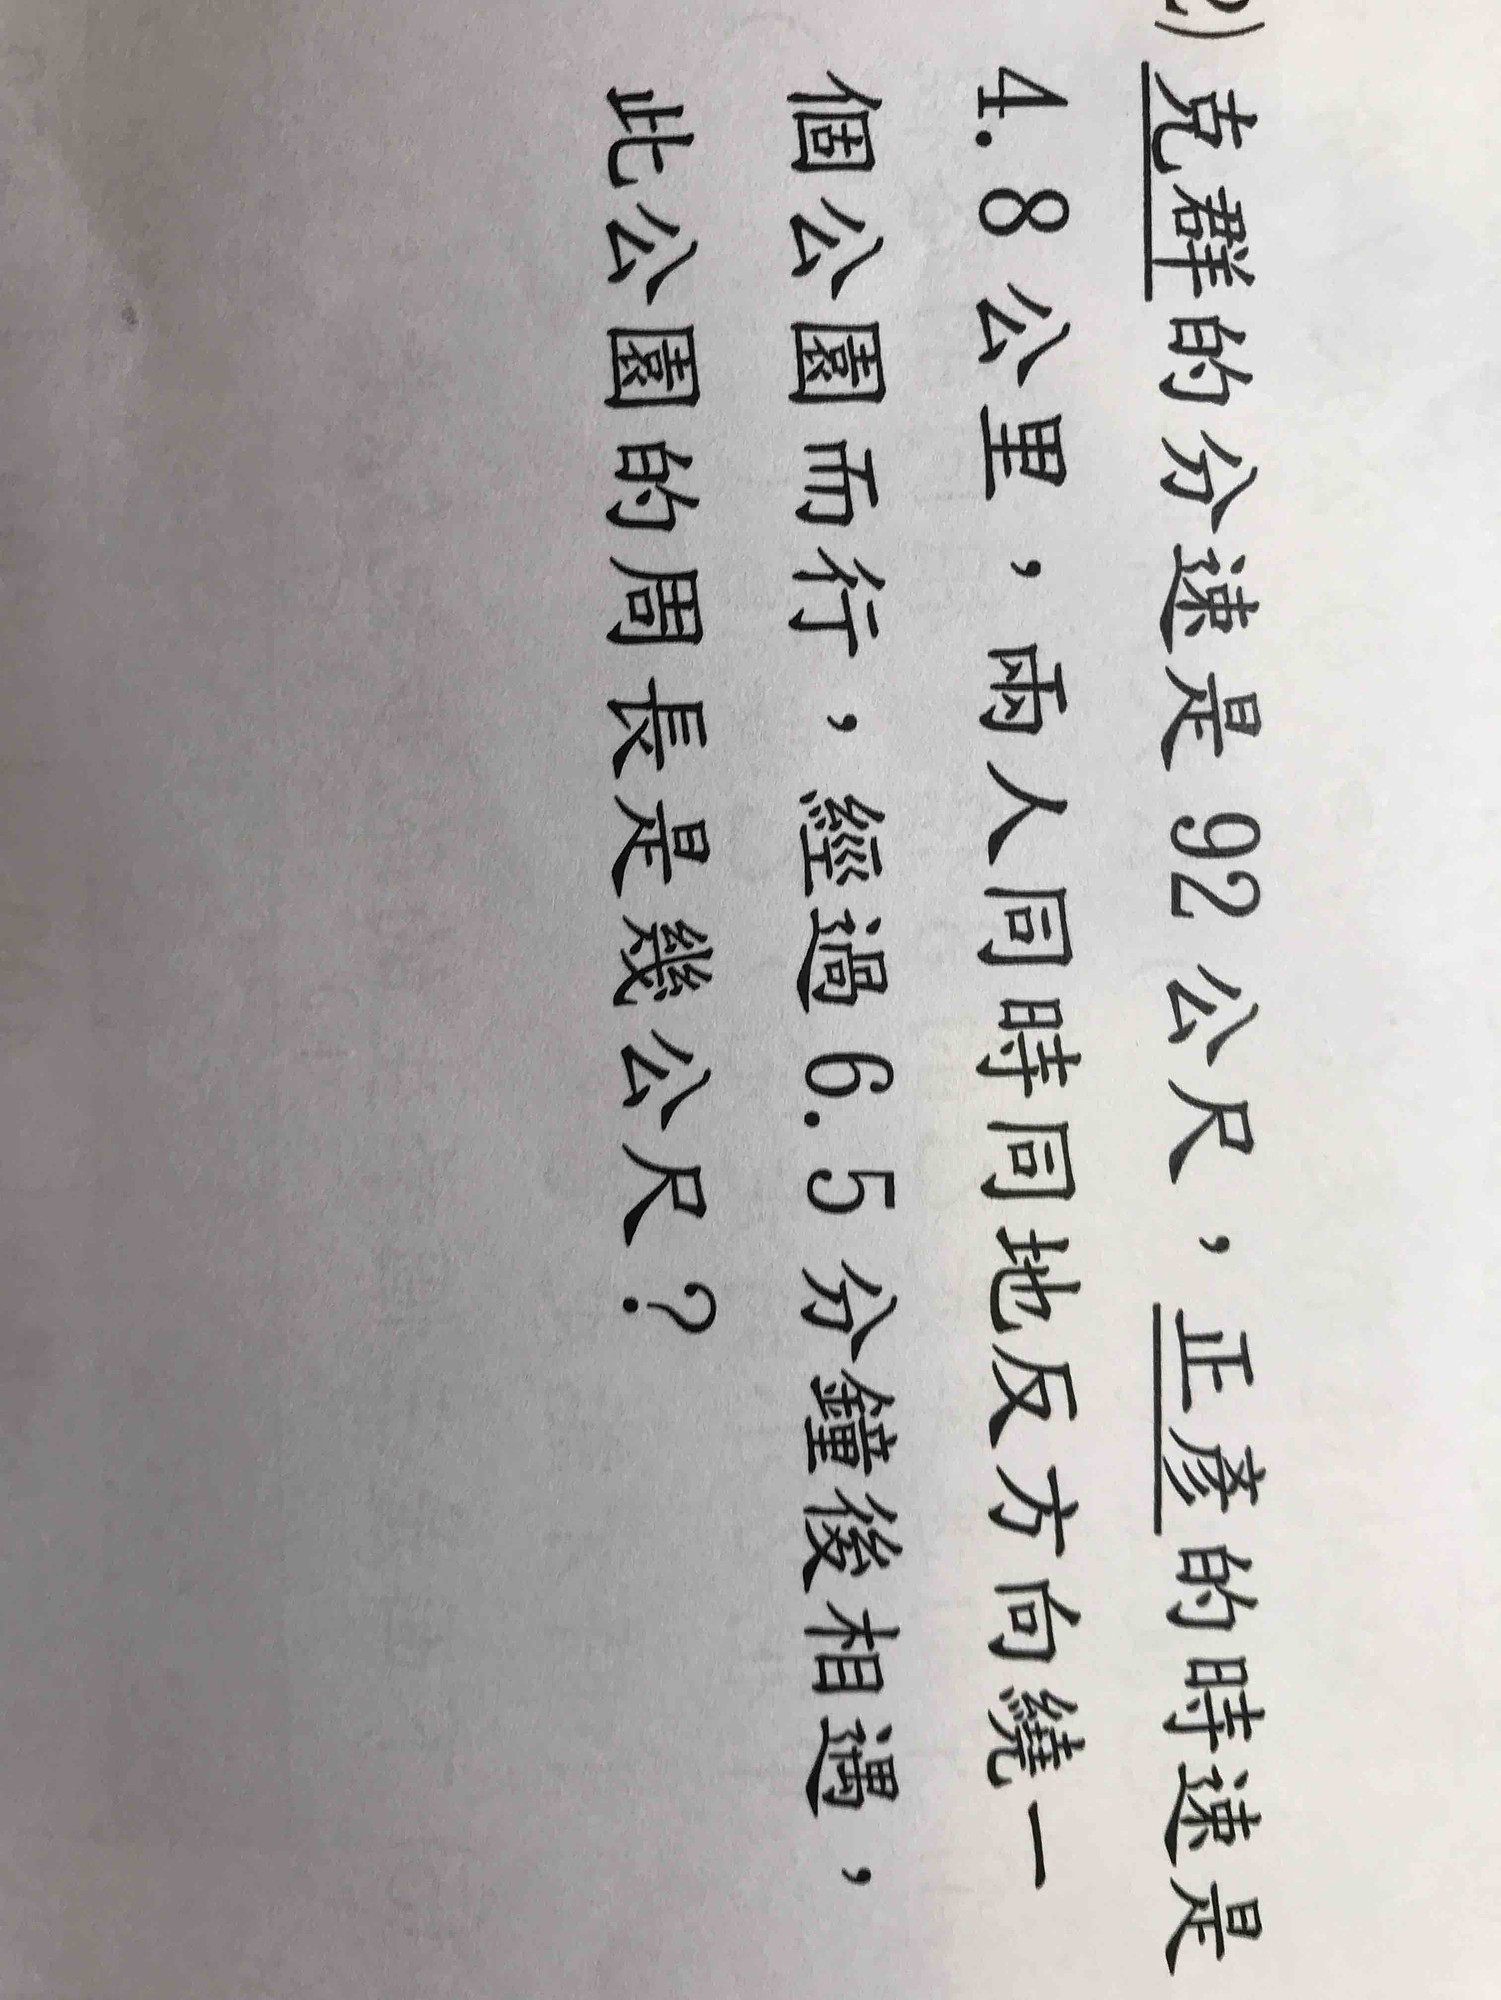 2) 克群的分速是92公尺，正彥的時速是
4.8公里，兩人同時同地反方向繞一
個公園而行，經過6.5分鐘後相遇，
此公園的周長是幾公尺？